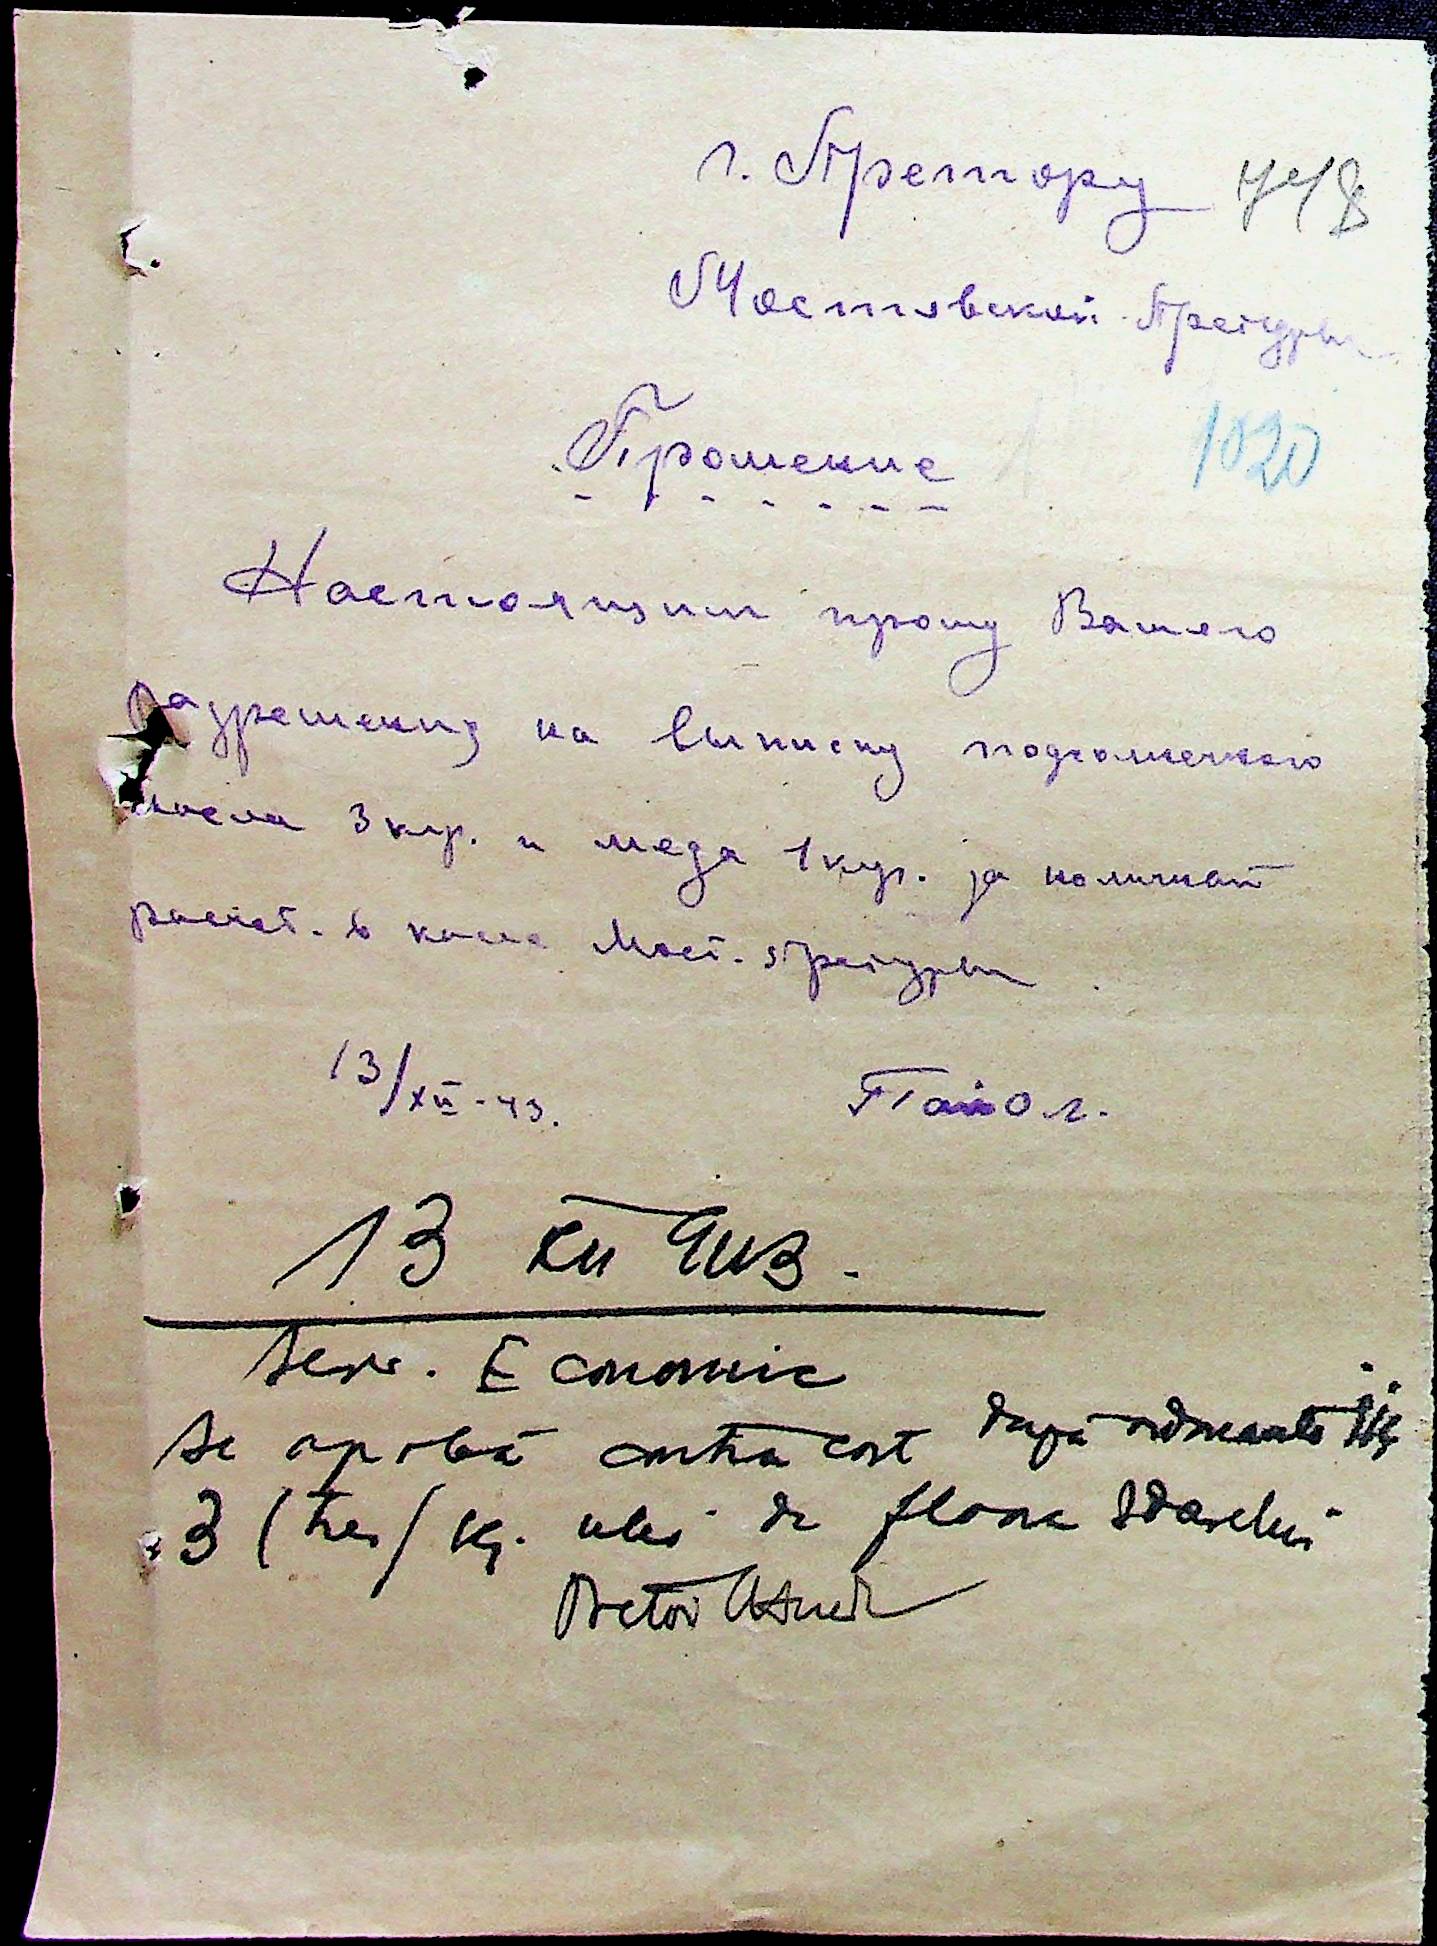 г. Претору 448
Мостовской Претуры
Прошение 1020
Настоящим прошу Вашего
разрешения на выписку подсолнечного
масла 3 клгр. и меда 1 клгр. за наличный
расчет. в касса Мост. претуры
13/XII-43.
13 XII 943.
Serv. Economic
Se aprobă contra cost după ordonanta
3 (trei) kg. ulei de floarea
Pretor